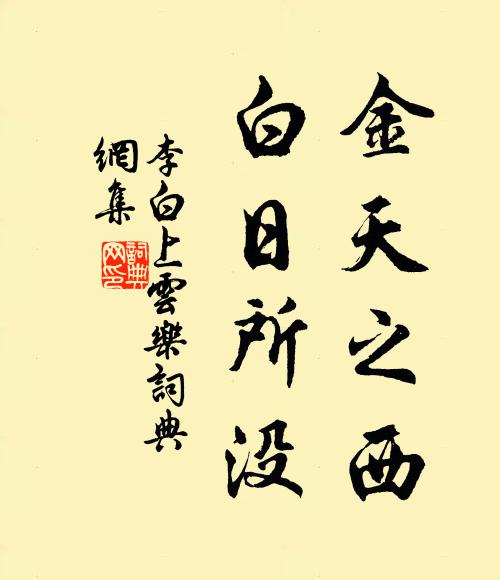 金天之西
白日所没
李白上雲樂詞典
網集
詞典
网印